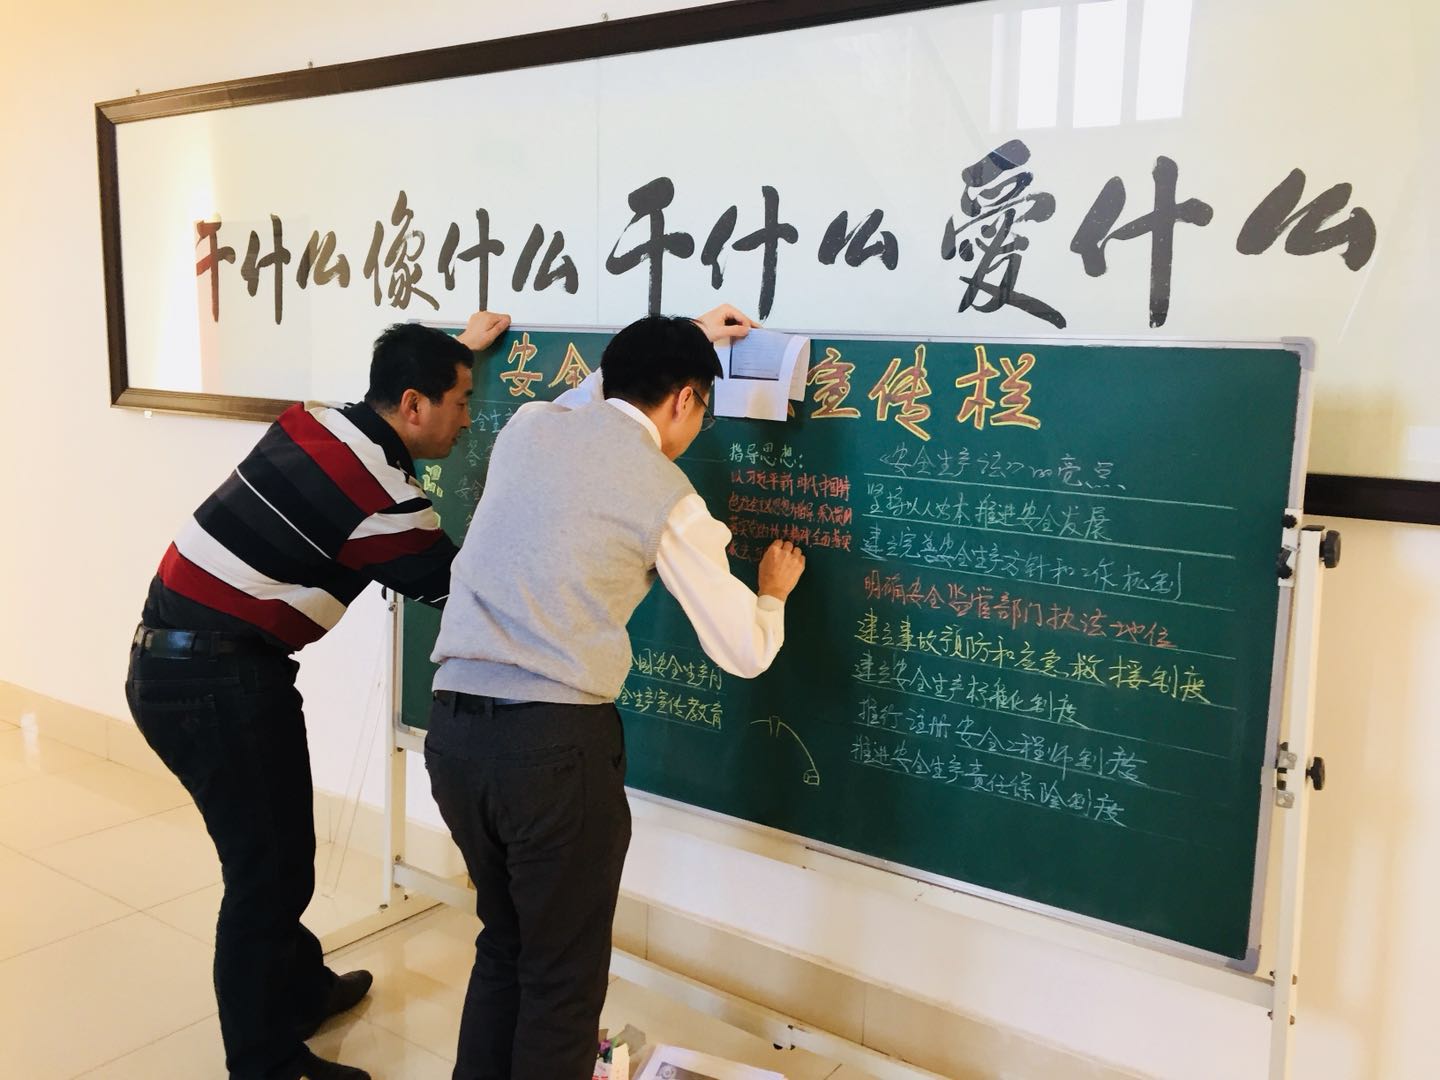 干什么像什么干什么爱什么
安全
宣传栏
指导思想:
以习近平新时代中国特
《安全生产法》的亮点
坚持以人为本推进安全发展
建立完善安全生产方针和工作机制
明确安全监管部门执法地位
建立事故预防和应急救援制度
建立安全生产标准化制度
推行注册安全工程师制度
推进安全生产责任保险制度
全国安全生产月
全生产宣传教育